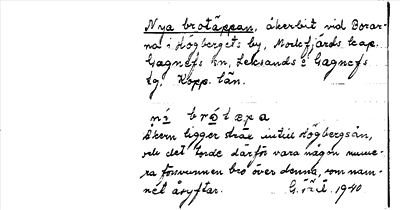 Nya brotäppan, åkerbit vid Borar-
na i Högbergets by, Mockfjärds kap.
Gagnefs kn, Leksands o Gagnefs
tg. Kopp. län.
nı́ brótepa
Åkern ligger strax intill Högbergsån,
och det torde därför vara någon nume-
ra försvunnen bro över denna, som nam-
net åsyftar. 1940